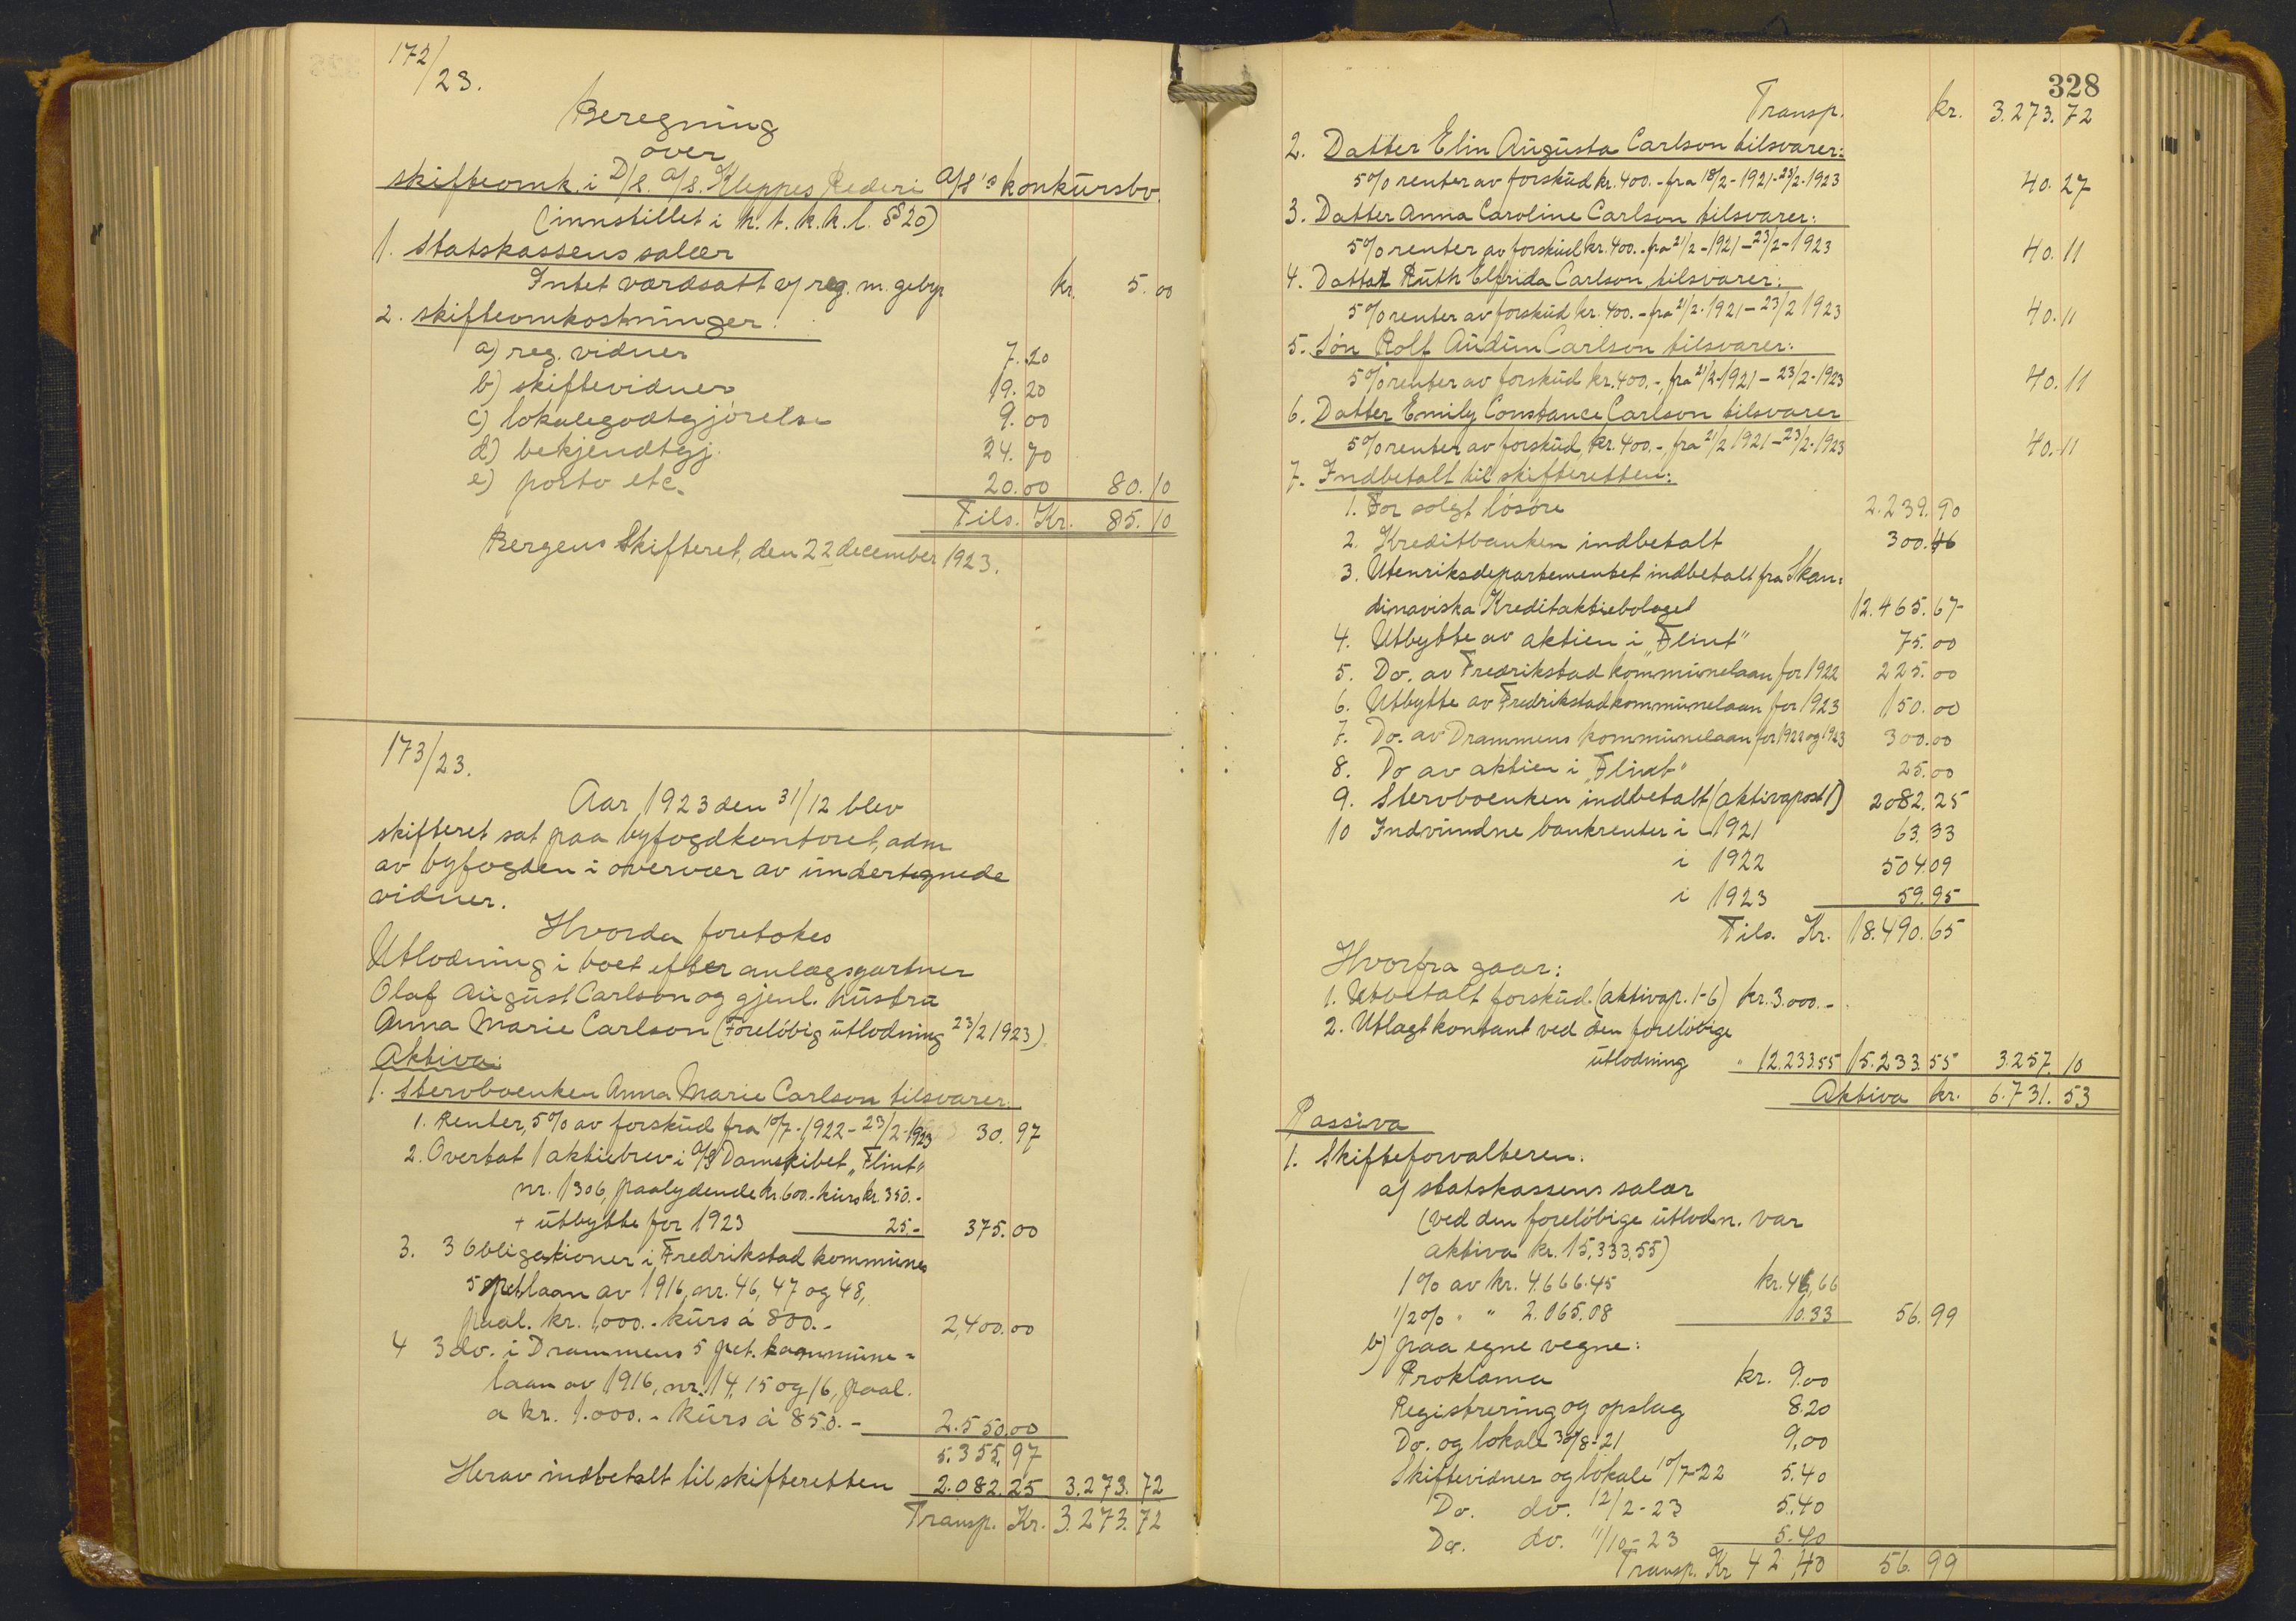 172/23.
Beregning
over
skifteomk. i D/S. A/S. Kleppes Rederi A/S's konkursbo.
(innstillet i h. t. k. k. l. § 20)
1. Statskassens salær
Intet værdsatt ej reg. m. gebyr kr. 5.00
2. skifteomkostninger.
a) reg. vidner 7.20
b) skiftevidner 19.20
c) lokalegodtgjörelse 9.00
d) bekjendtgj. 24.70
e) porto etc. 20.00 80.10
Tils. Kr. 85.10
Bergens Skifteret, den 22 december 1923.
173/23.
Aar 1923 den 31/12 blev
skifteret sat paa byfogdkontoret, adm
av byfogden i overvær av undertegnede
vidner.
Hvorda foretokes
Utlodning i boet efter anlægsgartner
Olaf August Carlson og gjenl. hustru
Anna Marie Carlson (Foreløbig utlodning 23/2 1923)
Aktiva:
1. Stervboenken Anna Marie Carlson tilsvarer:
1. Renter, 5% av forskud fra 10/7-1922 - 23/2-1923 30.97
2. Overtat 1 aktiebrev i A/S Damskibet „Flint"
nr. 1306, paalydende kr. 600.- kurs kr. 350.-
+ utbytte for 1923 25.- 375.00
3. 3 Obligationer i Fredrikstad kommunes
5 pct. laan av 1916, nr. 46, 47 og 48,
paal. kr. 1,000.- kurs á 800.- 2,400.00
4 3 do. i Drammens 5 pct. kommune=
laan av 1916, nr. 14, 15 og 16, paal.
a kr. 1.000.- kurs á 850.- 2.550.00
5.355.97
Herav indbetalt til skifteretten 2.082.25 3.273.72
Transp. Kr. 3.273.72
328
Transp. kr. 3.273.72
2. Datter Elin Augusta Carlson tilsvarer:
5% renter av forskud kr. 400.- fra 18/2-1921-23/2-1923 40.27
3. Datter Anna Caroline Carlson tilsvarer:
5% renter av forskud kr. 400.- fra 21/2-1921-23/2-1923 40.11
4. Datter Ruth Elfrida Carlson tilsvarer:
5% renter av forskud kr. 400.- fra 21/2-1921-23/2 1923 40.11
5. Sön Rolf Audun Carlson tilsvarer:
5% renter av forskud kr. 400.-, fra 21/2-1921-23/2-1923 40.11
6. Datter Emily Constance Carlson tilsvarer
5% renter av forskud, kr. 400.-, fra 21/2 1921-23/2-1923 40.11
7. Indbetalt til skifteretten:
1. For solgt lösöre 2.239.90
2. Kreditbanken indbetalt 300.46
3. Utenriksdepartementet indbetalt fra Skan=
dinaviska Kreditaktiebolaget 12.465.67
4. Utbytte av aktien i „Flint" 75.00
5. Do. av Fredrikstad kommunelaan for 1922 225.00
6. Utbytte av Fredrikstad kommunelaan for 1923 150.00
7. Do. av Drammens kommunelaan for 1922 og 1923 300.00
8. Do av aktien i „Flint" 25.00
9. Stervboenken indbetalt (aktivapost 1) 2082.25
10 Indvundne bankrenter i 1921 63.33
i 1922 504.09
i 1923 59.95
Tils. Kr. 18.490.65
Hvorfra gaar:
1. Utbetalt forskud. (aktivap. 1-6) kr. 3.000.-
2. Utlagt kontant ved den forelöbige
utlodning " 12.233.55 15.233.55 3.257.10
Aktiva kr. 6.731.53
Passiva
1. Skifteforvalteren.
a) statskassens salær
(ved den forelöbige utlodn. var
aktiva kr. 15,333,55)
1% av kr. 4.666.45 kr. 46,66
1/2% " " 2.065.08 10.33 56.99
b) paa egne vegne:
Proklama kr. 9.00
Registrering og opslag 8.20
Do. og lokale 30/8-21 9,00
Skiftevidner og lokale 10/7-22 5.40
Do. do. 12/2-23 5.40
Do. do. 11/10-23 5.40
Transp. Kr 42.40 56.99